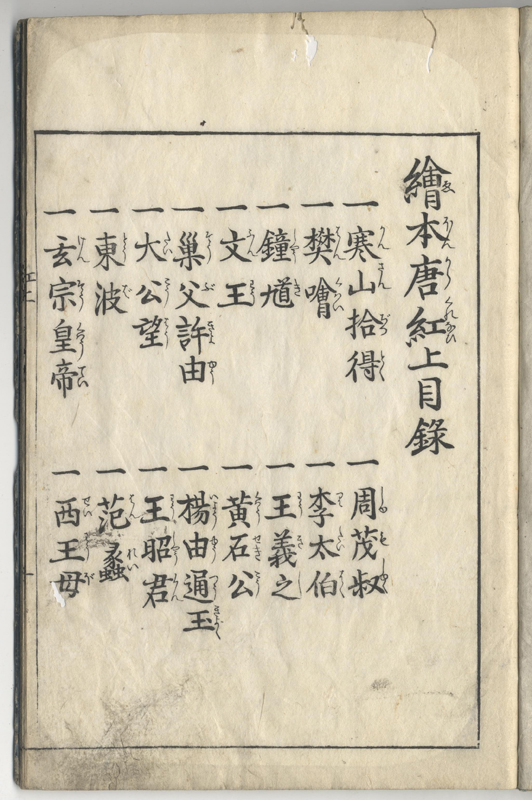 繪本唐紅上目錄
一寒山拾得 一周茂叔
一樊噲 一李太伯
一鐘馗 一王義之
一文王 一黃石公
一巢父許由 一楊由通玉
一大公望 一王昭君
一東波 一范蠡
一玄宗皇帝 一西王母